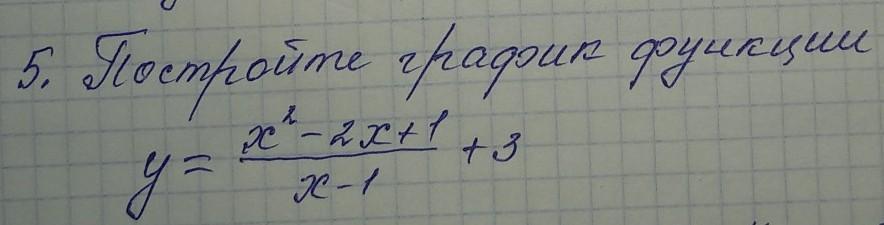 5. Постройте график функции
y = \frac{x^2 - 2x + 1}{x - 1} + 3